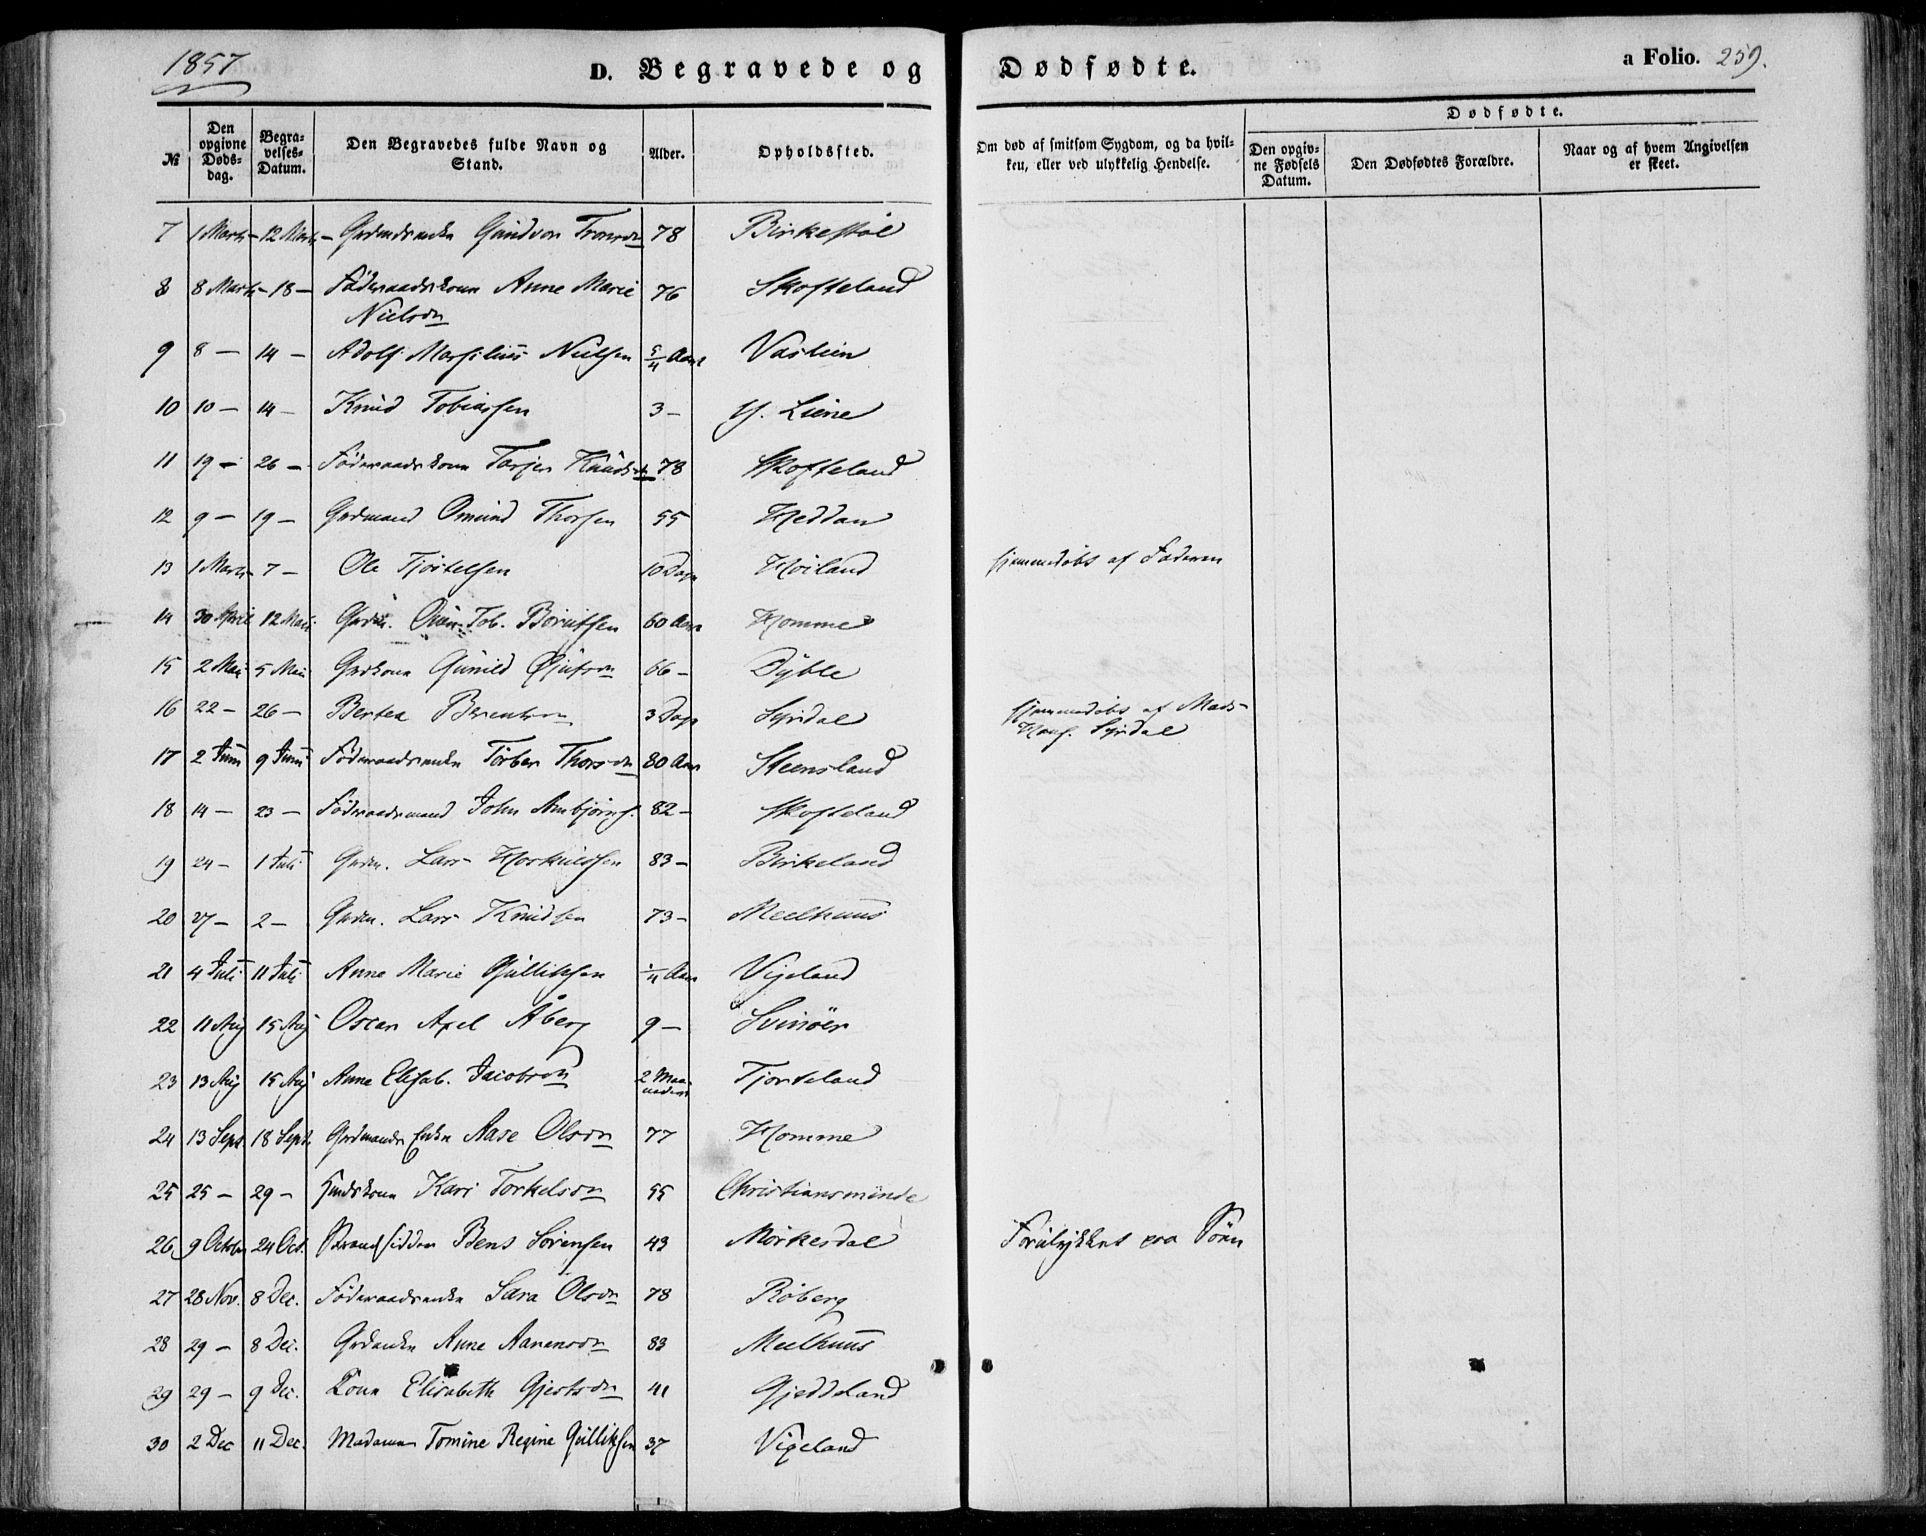 1857
D. Begravede og Dødfødte.
a Folio. 259.
№
Den opgivne Døds-dag.
Begra-velses-Datum.
Den Begravedes fulde Navn og Stand.
Alder.
Opholdssted.
Om død af smitsom Sygdom, og da hvil-ken, eller ved ulykkelig Hendelse.
Dødfødte.
Den opgiv-ne Fødsels Datum.
Den Dødfødtes Forældre.
Naar og af hvem Angivelsen er skeet.
7 1 Marts – 12 Marts – Grdmdsenke Gundvor Tronsdn 78 Birkestøl
8 8 Marts – 18 – Föderaadskone Anne Marie 76 Skofteland
Nielsdn
9 8 – 14 – Adolf Nielsen 5/4 Aar Vaslien
10 10 – 14 – Knud Tobiassen 3 – Liene
11 19 – 26 – Föderaadskone Torjer Knudsdn 78 Skofteland
12 9 – 19 – Grdmand Omund Thorsen 55 Heddan
13 1 Marts 7 – Ole 10 Dage Höiland hjemmedøbt af Faderen
14 30 April 12 Mai Tob. 60 Aar Homme
15 2 Mai 5 Mai Grdkone Gunild 66 – Dÿble
16 22 – 26 – Bertea Berentsdn 3 Dage Syrdal hjemmedøbt af Mads
Syrdal
17 2 Juni 9 Juni Föderaadsenke Torber Thorsdn 80 Aar Steensland
18 14 – 23 – Föderaadsmand John Ambjörns. 82 – Skofteland
19 24 – 1 Juli Grdm. Lars 83 – Birkeland
20 27 – 2 – Grdm. Lars Knudsen 73 – Meelhuus
21 4 Juli 11 Juli Anne Marie Gulliksen Aar Vigeland
22 11 Aug 15 Aug Oscar Axel Åberg 9 – Svinöer
23 13 Aug 15 Aug Anne Elisab. Jacobsdn 2 Maaneder Tjorteland
24 13 Sept. 18 Sept. Grdmands Enke Aase Olsdn 77 Homme
25 25 – 29 – Kari Torkelsdn 55 Christiansminde
26 9 Octobr 24 Oct. Strandsidder Bens Sörensen 43 Mörkesdal Forulykket paa Söen
27 28 Nov. 8 Dec. Föderaadsenke Sara Olsdn 78 Röberg
28 29 – 8 Dec. Grdenke Anne Aanensdn 83 Meelhuus
29 29 – 9 Dec. Kone Elisabeth Gjertsdn 41 Gjeddeland
30 2 Dec 11 Dec. Madame Tomine Regine Gulliksen 37 Vigeland